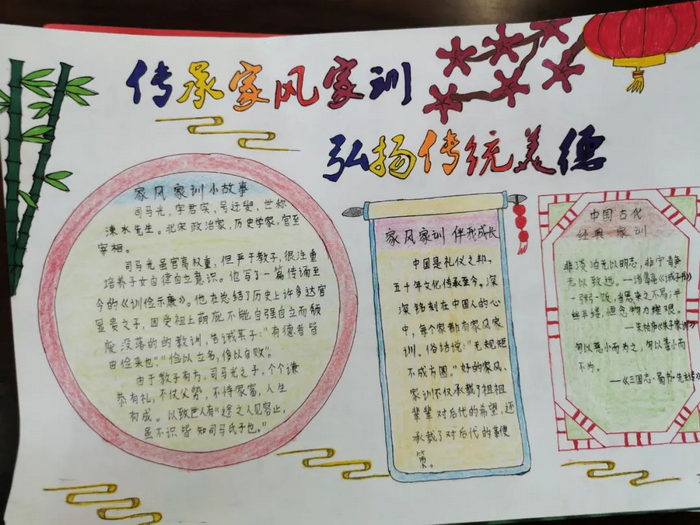 传承家风家训
弘扬传统美德
家风家训小故事
司马光，字君实，号迂叟，世称
涑水先生。北宋政治家，历史学家，官至
宰相。
司马光虽官高权重，但严于教子，很注重
培养子女自律自立意识。他写了一篇传诵至
今的《训俭示康》。他在总结了历史上许多达官
显贵之子，因受祖上荫庇不能自强自立而颓
废没落的的教训，告诫某子："有德者皆
由俭来也""俭以立名，侈以自败"。
由于教子有方，司马光之子，个个谦
恭有礼，不仅父势，不恃家富，人生
有成。以致世人有"途之人见容止，
虽不识皆知司马氏子也。"
家风家训 伴我成长
中国是礼仪之邦，
五千年文化传承至今。深
深铭刻在中国人的心
中，每个家都有家风家
训，俗话说："无规矩
不成方圆。"好的家风、
家训不仅承载了祖祖
辈辈对后代的希望，还
承载了对后代的鞭
策。
中国古代
经典家训
非淡泊无以明志，非宁静
无以致远。——诸葛亮《诫子书》
一粥一饭，当思来之不易；半
丝半缕，恒念物力维艰。
——朱柏庐《朱子家训》
勿以恶小而为之，勿以善小而
不为。
——《三国志·蜀书·先主传》